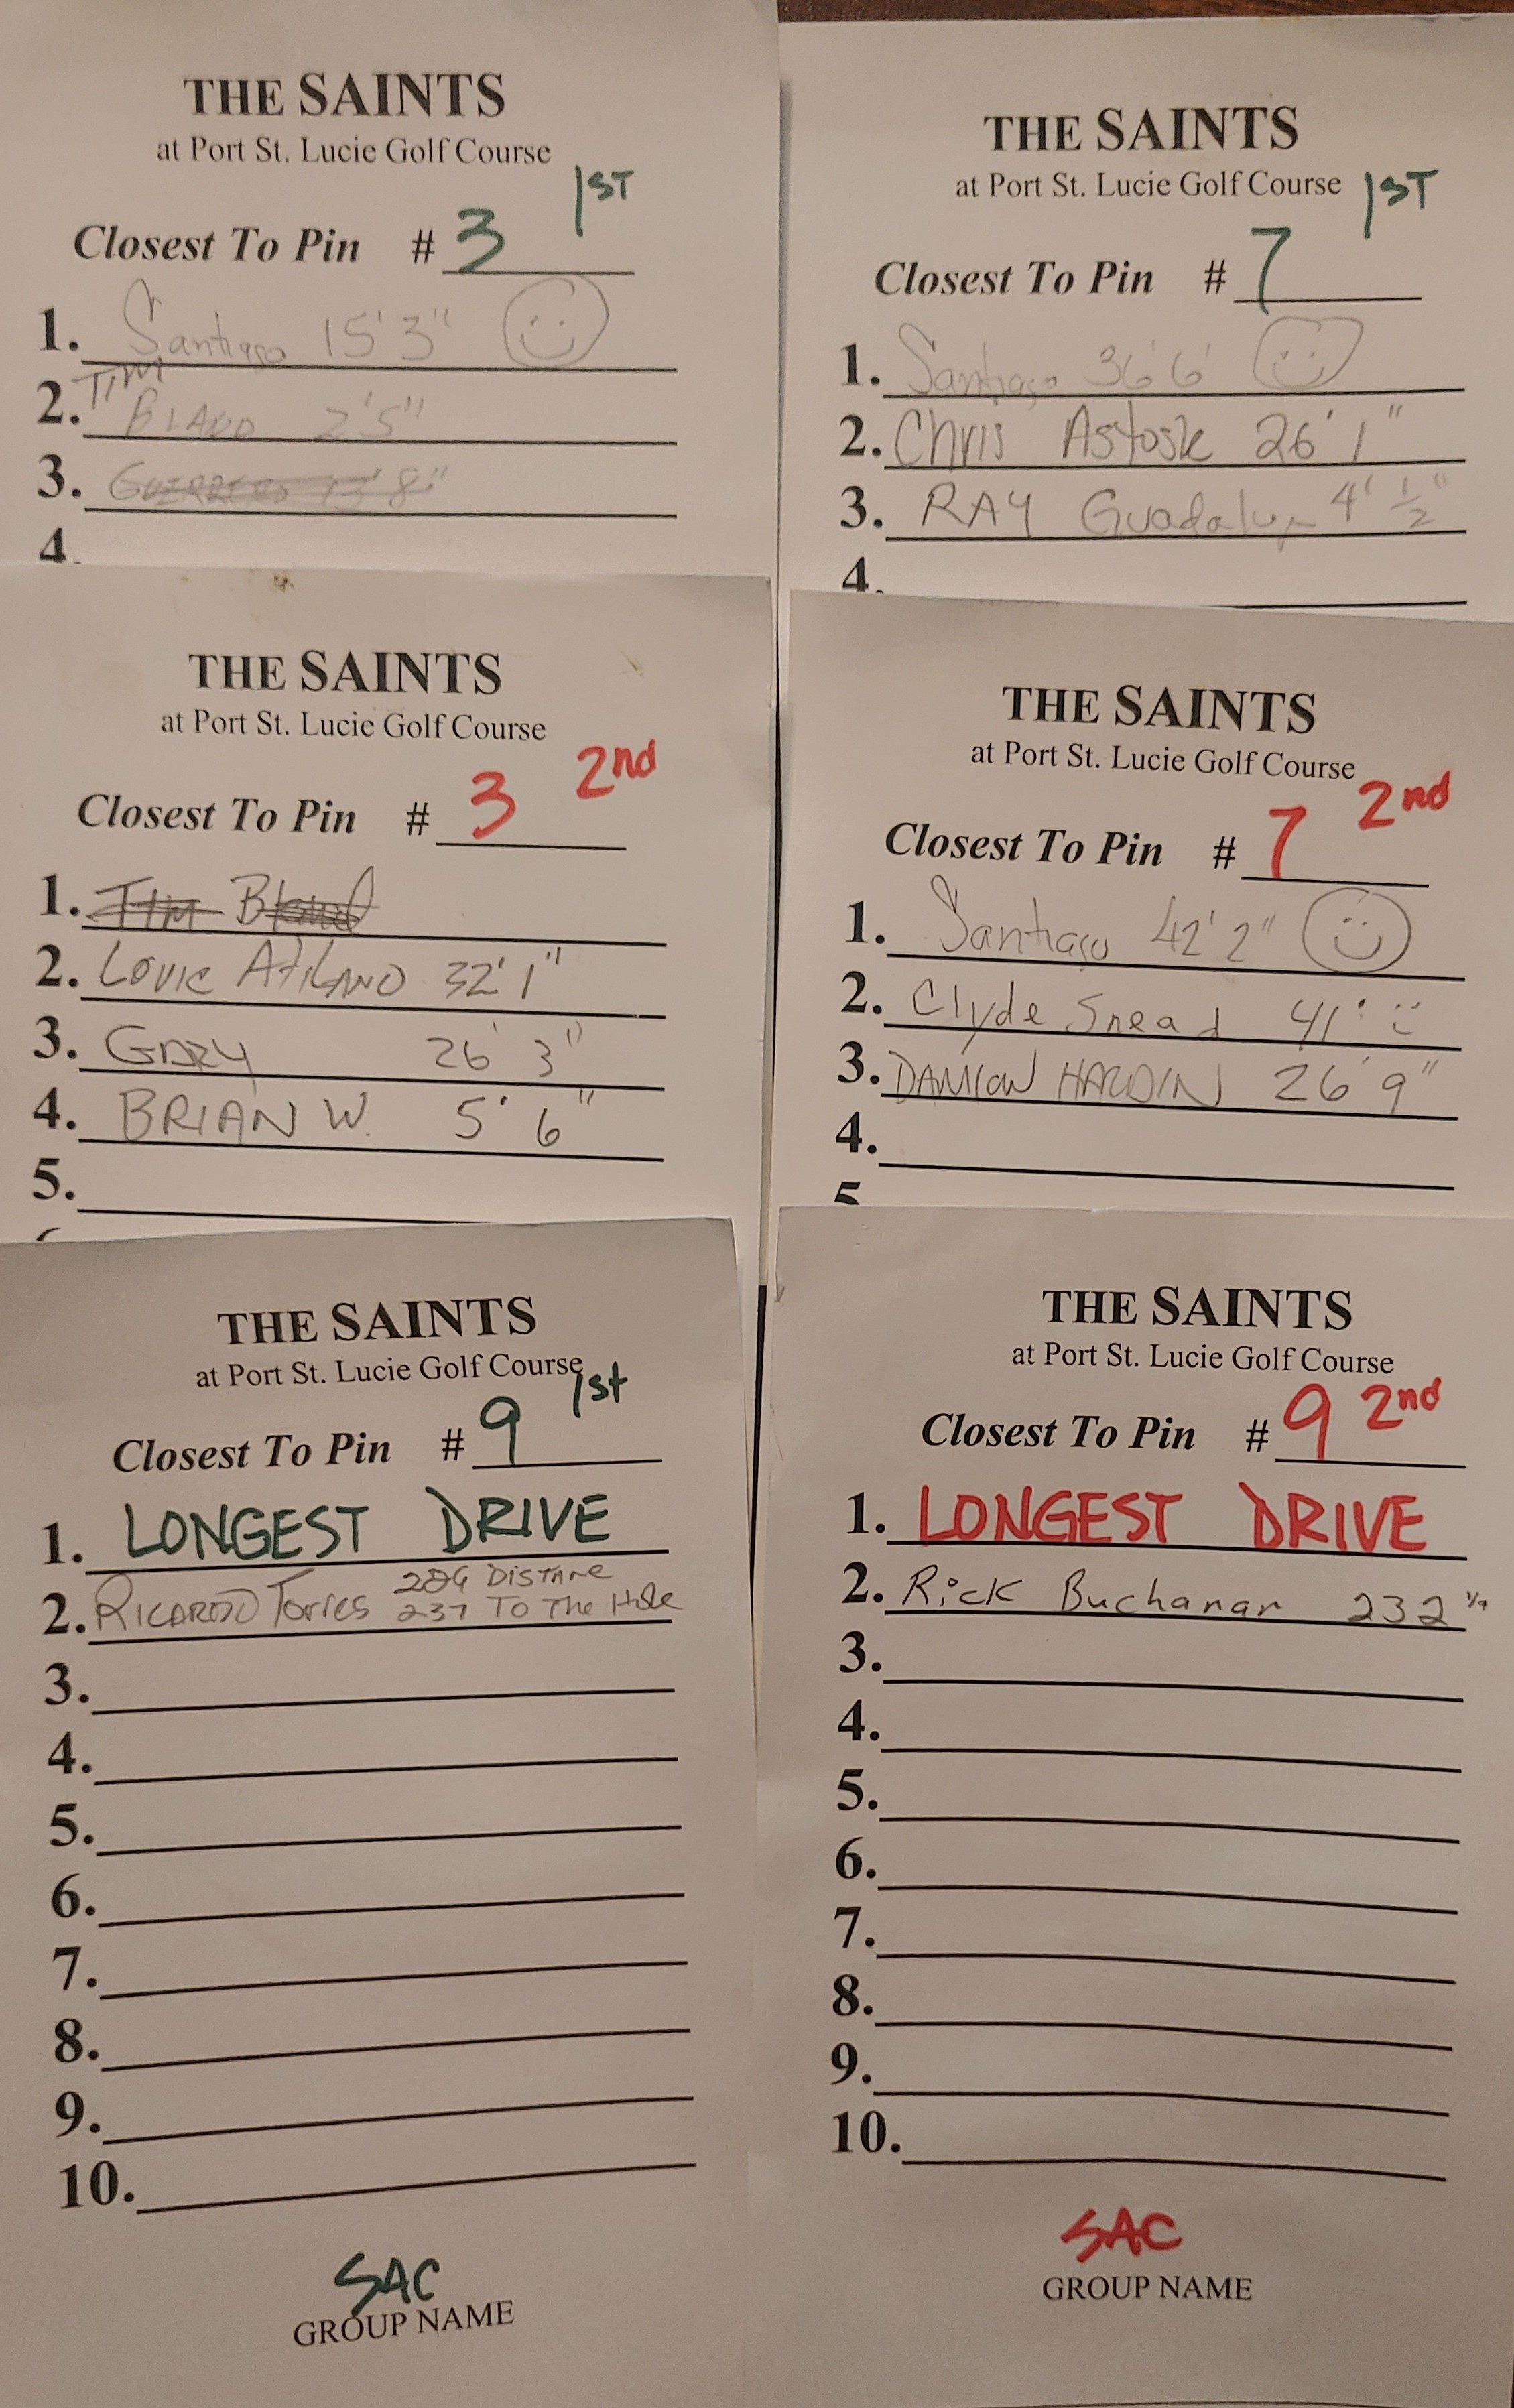 THE SAINTS
at Port St. Lucie Golf Course
1ST
Closest To Pin # 3
1. Santiago 15'3"
2. TIM BLAND 2'5"
3. GUERRERO 13'8"
4.
THE SAINTS
at Port St. Lucie Golf Course
1ST
Closest To Pin # 7
1. Santiago 36'6'
2. Chris Astosk 26'1"
3. RAY Guadalup 4' 1/2"
4.
THE SAINTS
at Port St. Lucie Golf Course
2nd
Closest To Pin # 3
1. TIM Bland
2. LOUIE ATILANO 32'1"
3. GARY 26' 3"
4. BRIAN W. 5' 6"
5.
THE SAINTS
at Port St. Lucie Golf Course
2nd
Closest To Pin # 7
1. Santiago 42'2"
2. Clyde Snead 41'
3. DAMION HARDIN 26'9"
4.
5
THE SAINTS
at Port St. Lucie Golf Course
1st
Closest To Pin # 9
1. LONGEST DRIVE
2. RICARDO Torres Distane
237 To The Hole
3.
4.
5.
6.
7.
8.
9.
10.
SAC
GROUP NAME
THE SAINTS
at Port St. Lucie Golf Course
Closest To Pin # 9 2nd
1. LONGEST DRIVE
2. Rick Buchanan 232
3.
4.
5.
6.
7.
8.
9.
10.
SAC
GROUP NAME